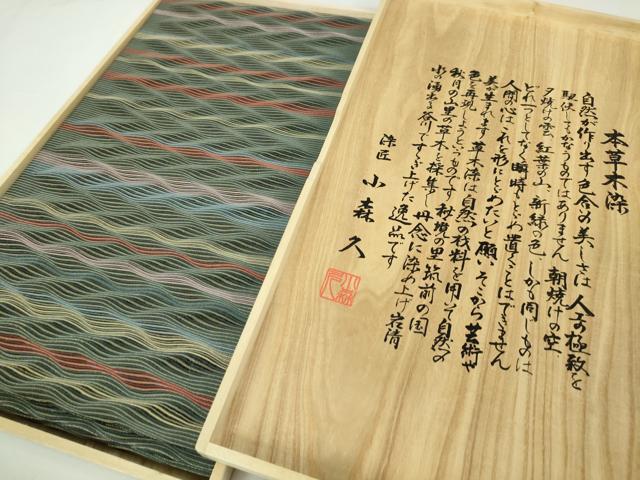 本草木染
自然が作り出す色合の美しさは人工の極致を
駆使してもかなうものではありません 朝焼けの空
夕焼けの雲 紅葉の山 新緑の色 しかも同じものは
どれ一つとしてなく瞬時もとどめ置くことはできません
人間の心は これを形にとどめたいと願い そこから芸術や
美が生まれます 草木染は自然の材料を用いて自然の
色を再現しようというものです 秘境の里筑前の国
秋月の山里の草木を採集し 丹念に染め上げ 岩清
水の湧き出る谷川で すすぎ上げた逸品です
染匠 小森 久